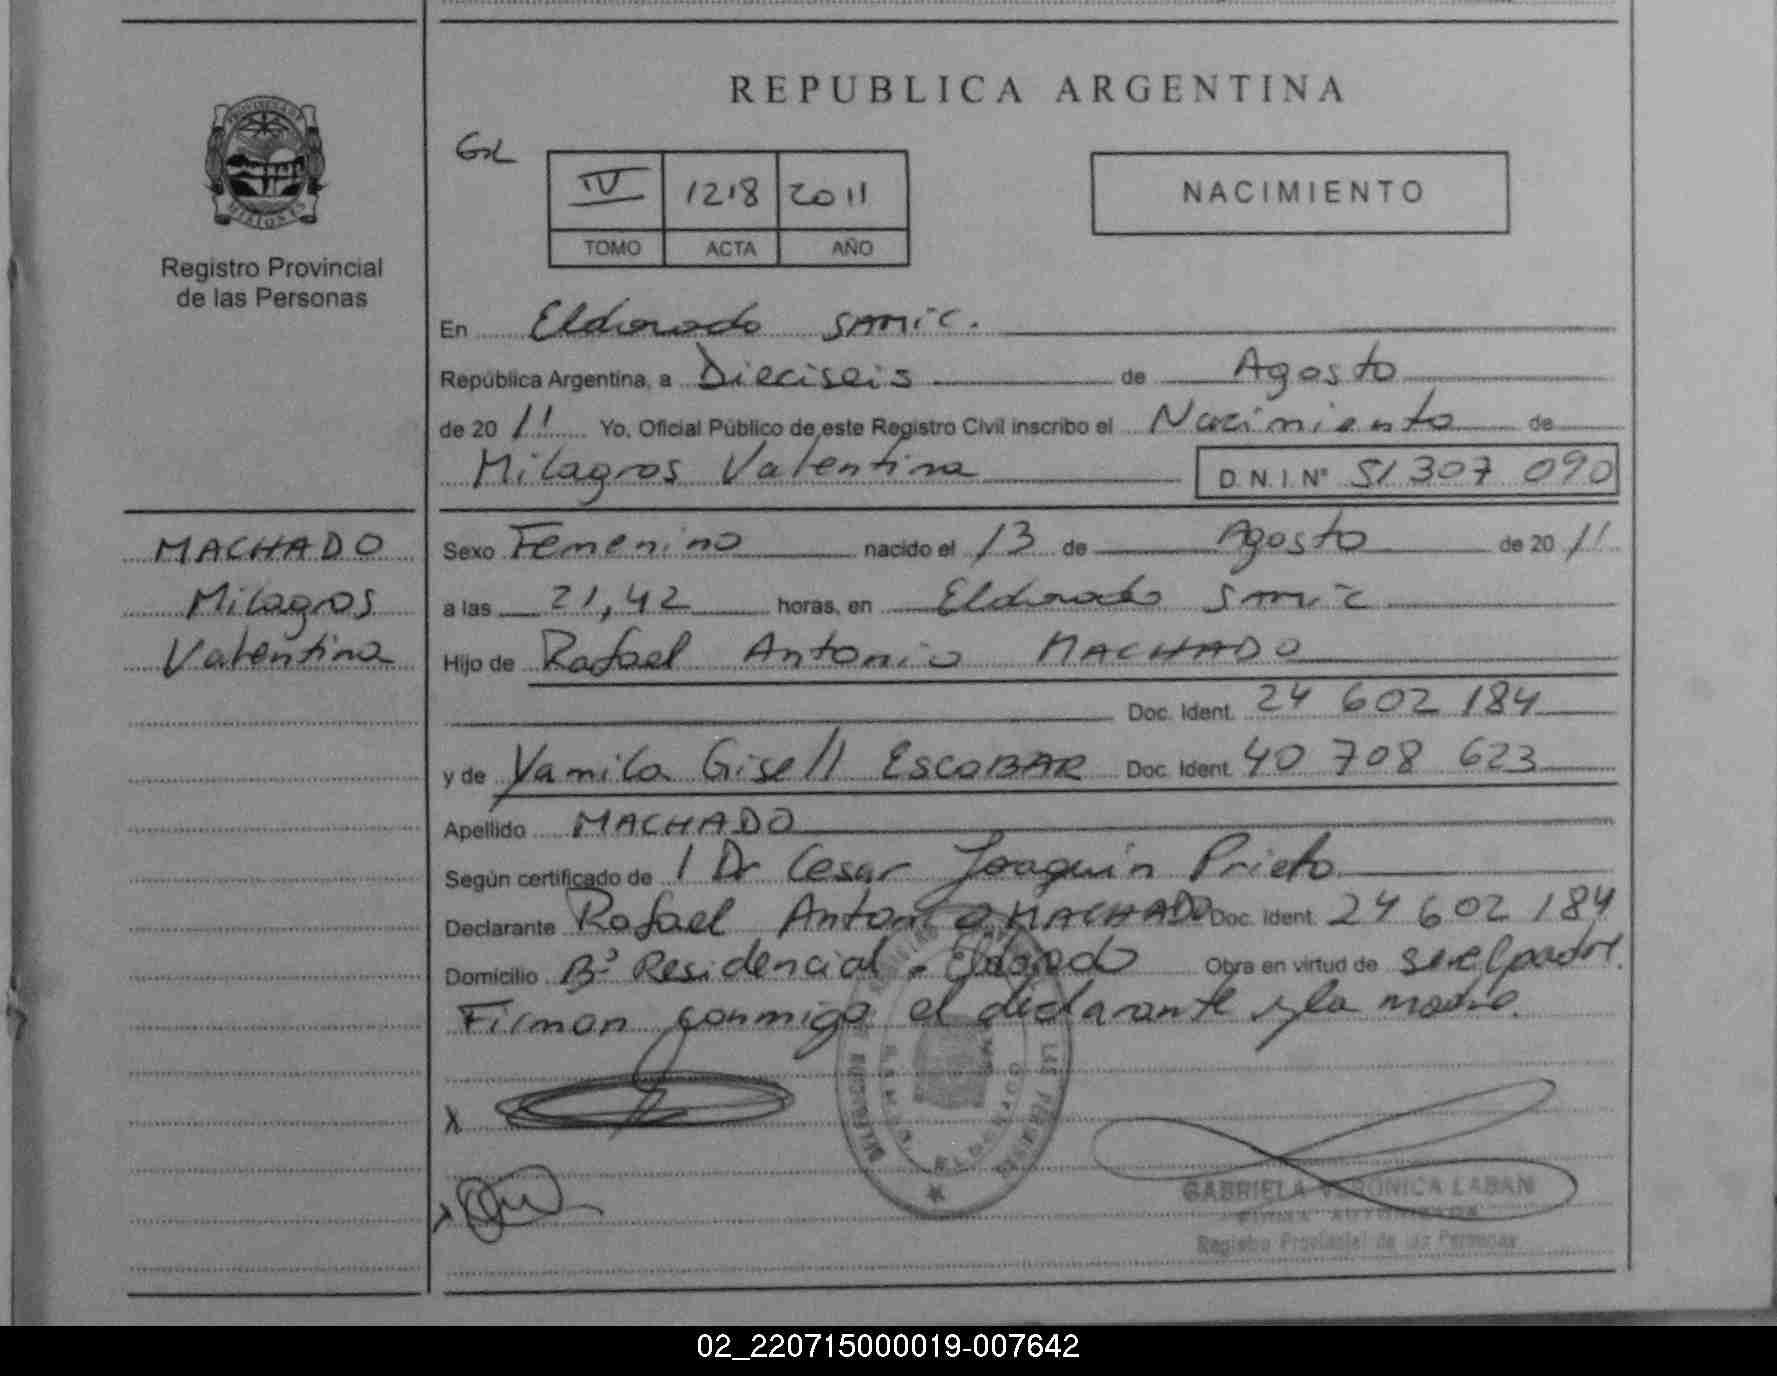 REPUBLICA ARGENTINA
PROVINCIA DE
MISIONES
Registro Provincial
de las Personas
IV 1218 2011
TOMO ACTA AÑO
NACIMIENTO
En Eldorado SAMIC.
República Argentina, a Dieciseis de Agosto
de 20 11 Yo, Oficial Público de este Registro Civil inscribo el Nacimiento de
Milagros Valentina D.N.I. Nº 51 307 090
MACHADO
Milagros
Valentina
Sexo Femenino nacido el 13 de Agosto de 20 11
a las 21,42 horas, en Eldorado Samic
Hijo de Rafael Antonio MACHADO
Doc. Ident. 24 602 184
y de Yamila Gisell ESCOBAR Doc. Ident. 40 708 623
Apellido MACHADO
Según certificado de 1 Dr Cesar Joaquin Prieto
Declarante Rafael Antonio MACHADO Doc. Ident. 24 602 184
Domicilio Bº Residencial - Eldorado Obra en virtud de ser el padre.
Firman conmigo el declarante y la madre.
X
X
GABRIELA VERONICA LABAN
FIRMA AUTORIZADA
Registro Provincial de las Personas
02_220715000019-007642